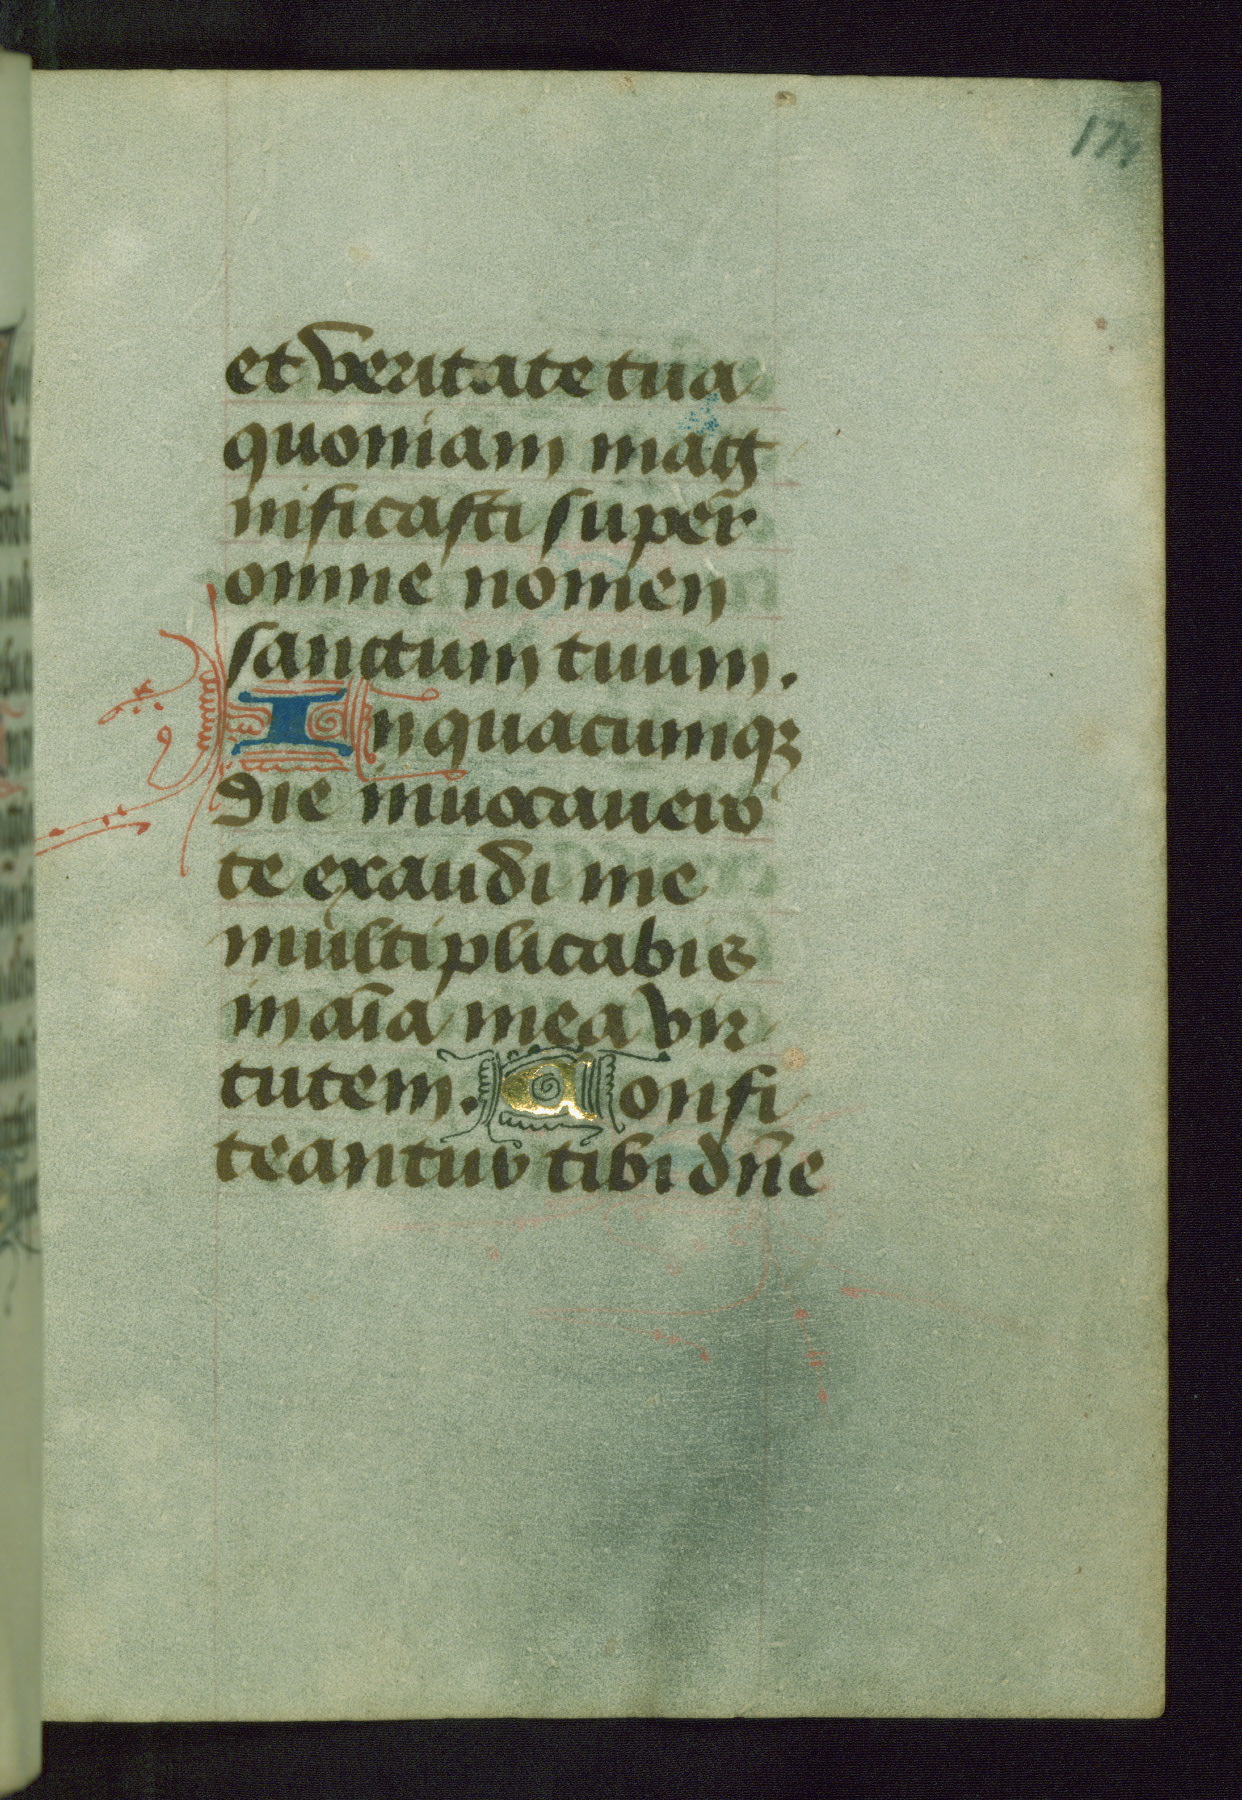 174
et veritate tua
quoniam mag
nificasti super
omne nomen
sanctum tuum.
In quacumqꝫ
die inuocauero
te exaudi me
multiplicabis
in aīa mea vir
tutem. Confi
teantur tibi dn̄e